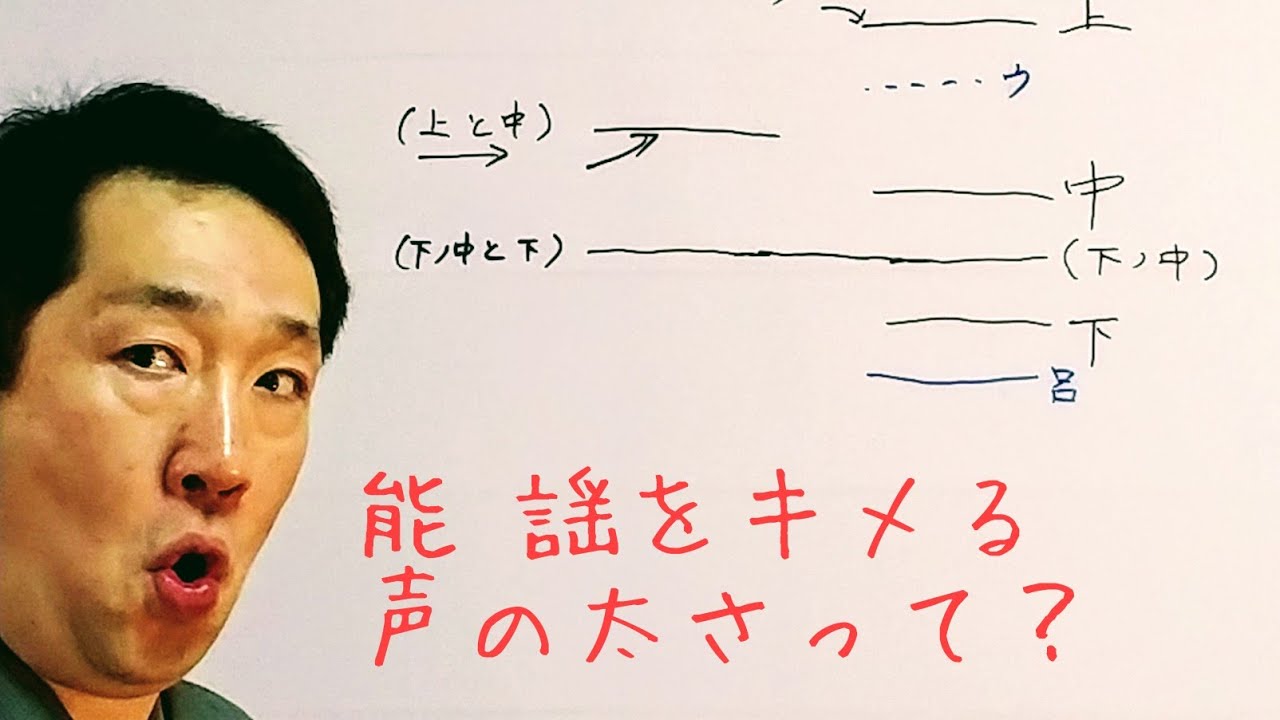 上
ウ
(上と中)
中
(下ノ中と下)
(下ノ中)
下
呂
能 謡をキメる
声の太さって?